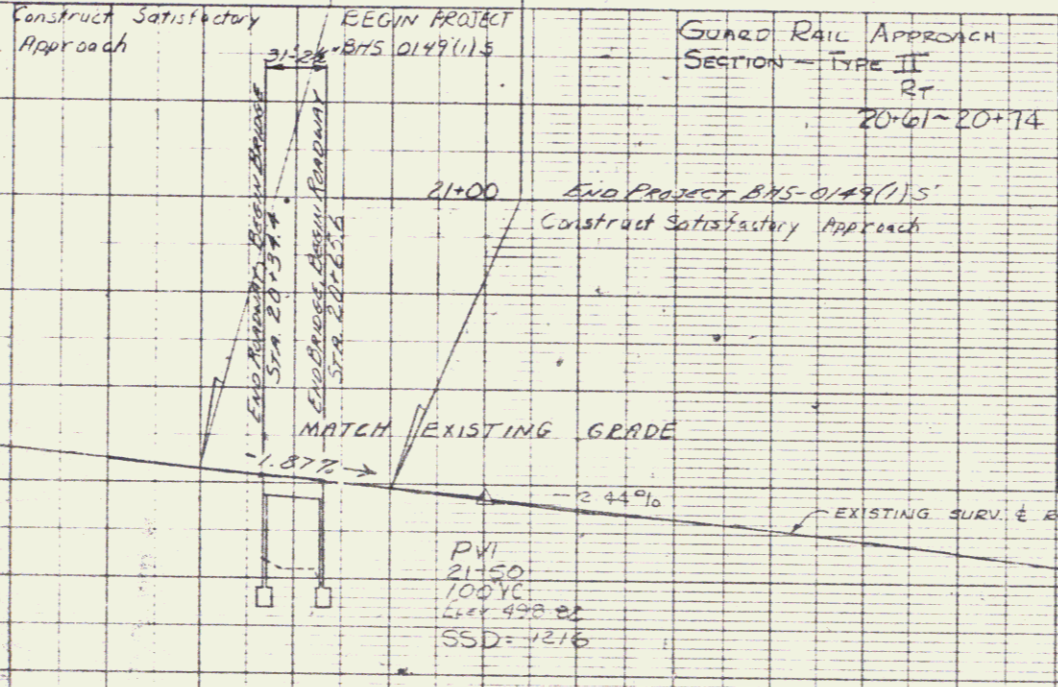 Construct Satisfactory
Approach
BEGIN PROJECT
BHS 0149(1)S
GUARD RAIL APPROACH
SECTION - TYPE II
RT
20+61~20+74
END ROADWAY, BEGIN BRIDGE
STA. 20+34.4
END BRIDGE, BEGIN ROADWAY
STA. 20+65.6
21+00
END PROJECT BHS-0149(1)S
Construct Satisfactory Approach
MATCH EXISTING GRADE
-1.877%
-2.44%
EXISTING SURV. £
PVI
21+50
100'VC
ELEV 498
SSD= 1216